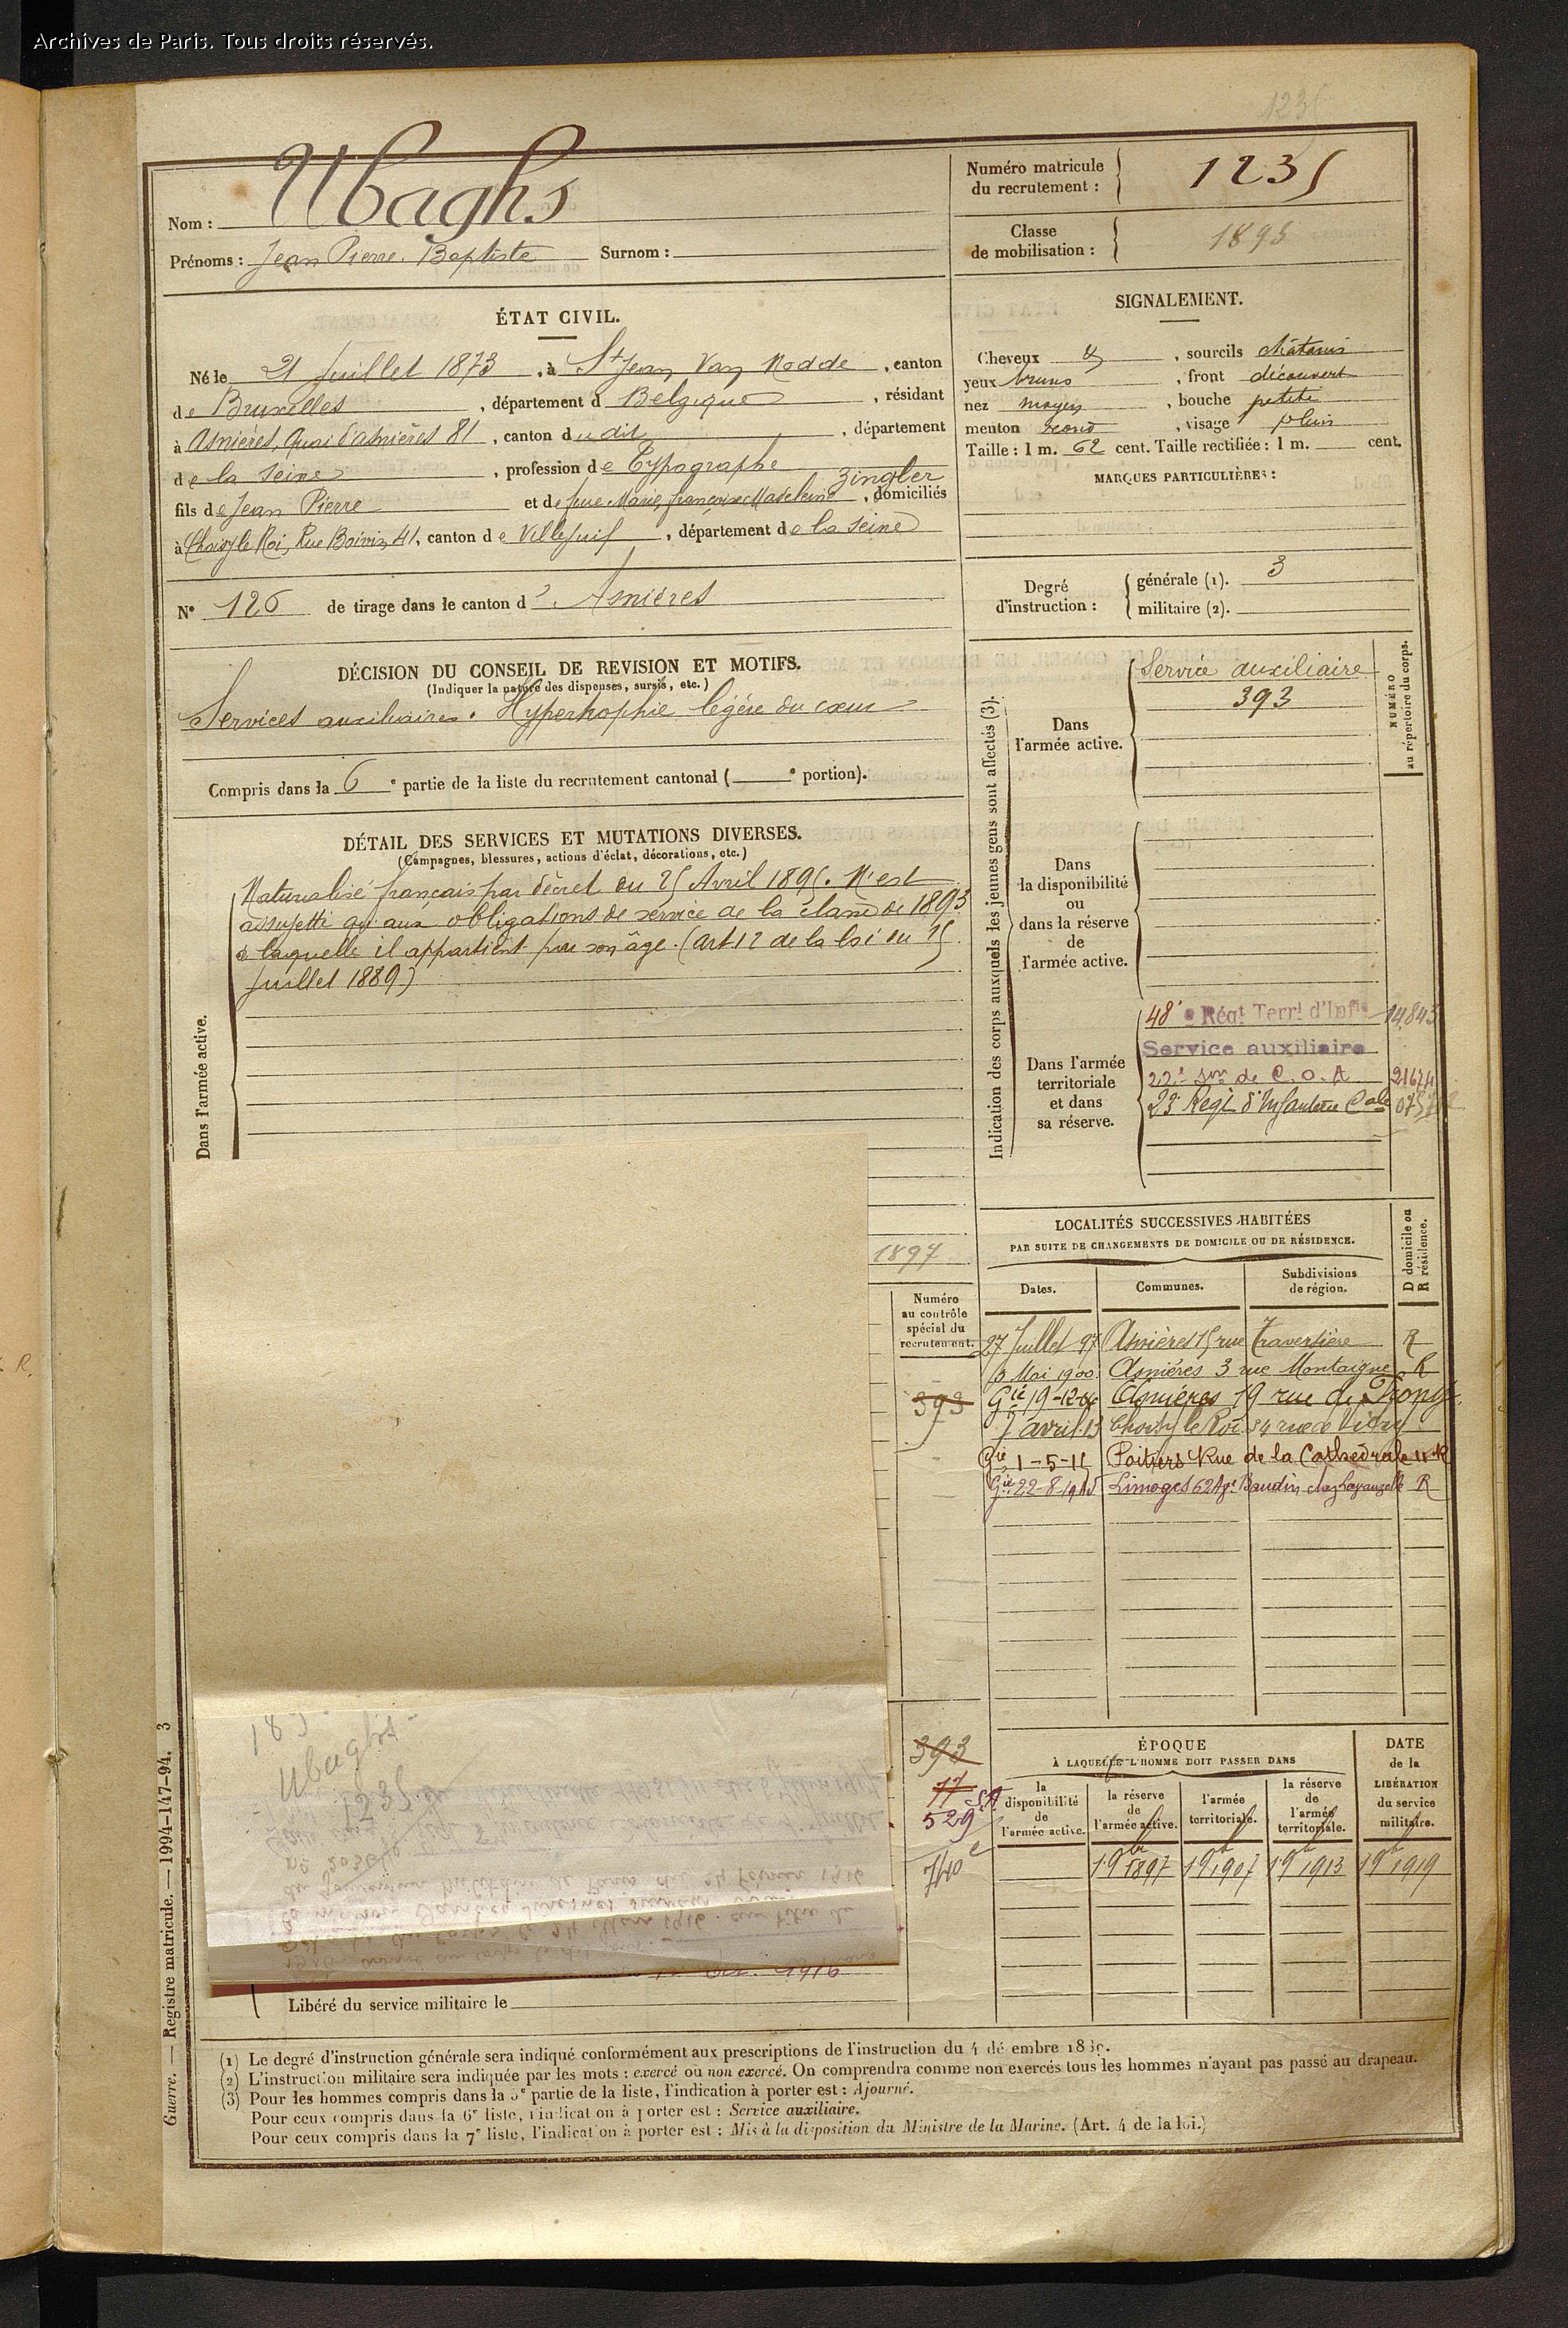 Archives de Paris. Tous droits réservés.
Nom : Ubaghs
Prénoms : Jean Pierre Baptiste Surnom :
Numéro matricule du recrutement : 1235
Classe de mobilisation : 1893
ÉTAT CIVIL.
Né le 21 Juillet 1873, à St Jean Van Nodde, canton
de Bruxelles, département d Belgique, résidant
à Asnières, Quai d'asnières 81, canton dudit, département
de la Seine, profession de Typographe
Zingler
fils de Jean Pierre et de feue Marie, françoise Madeleine, domiciliés
à Choisy le Roi, Rue Boivin, 41, canton de Villejuif, département de la Seine
N° 126 de tirage dans le canton d' Asnières
SIGNALEMENT.
Cheveux &, sourcils châtains
yeux bruns, front découvert
nez moyen, bouche petite
menton rond, visage plein
Taille : 1 m. 62 cent. Taille rectifiée : 1 m. cent.
MARQUES PARTICULIÈRES :
Degré d'instruction : générale (1). 3
militaire (2).
DÉCISION DU CONSEIL DE REVISION ET MOTIFS.
(Indiquer la nature des dispenses, sursis, etc.)
Services auxiliaires. Hypertrophie légère du cœur
Compris dans la 6e partie de la liste du recrutement cantonal ( e portion).
DÉTAIL DES SERVICES ET MUTATIONS DIVERSES.
(Campagnes, blessures, actions d'éclat, décorations, etc.)
Dans l'armée active.
Naturalisé français par décret du 25 Avril 1895. N'est
assujetti qu'aux obligations de service de la classe de 1893
à laquelle il appartient par son âge. (art 12 de la loi du 15
Juillet 1889)
1897
Indication des corps auxquels les jeunes gens sont affectés (3).
NUMÉRO au répertoire du corps.
Dans l'armée active.
Service auxiliaire
393
Dans la disponibilité ou dans la réserve de l'armée active.
Dans l'armée territoriale et dans sa réserve.
48e Régt Terrl d'Infie 14843
Service auxiliaire
22e Son de C.O.A 21674
23e Regt d'Infanterie Cale
LOCALITÉS SUCCESSIVES HABITÉES
PAR SUITE DE CHANGEMENTS DE DOMICILE OU DE RÉSIDENCE.
Dates. Communes. Subdivisions de région. D domicile ou R résidence.
27 Juillet 97 Asnières 15 rue Traversière R
3 Mai 1900 Asnières 3 rue Montaigne R
Gie 19-12-06 Asnières 19 rue de
7 avril 13 Choisy le Roi 54 rue de Vitry
Gie 1-5-15 Poitiers Rue de la Cathédrale 11 R
Gie 22-8-1915 Limoges 62 Av. Baudin R
Numéro au contrôle spécial du recrutement.
393
393
17 SA
529
740
Ubaghs
1235
Libéré du service militaire le
ÉPOQUE
À LAQUELLE L'HOMME DOIT PASSER DANS
la disponibilité de l'armée active.
la réserve de l'armée active.
l'armée territoriale.
la réserve de l'armée territoriale.
DATE de la LIBÉRATION du service militaire.
1 9bre 1897 1 9b 1907 1 9b 1913 1 9b 1919
(1) Le degré d'instruction générale sera indiqué conformément aux prescriptions de l'instruction du 4 dé embre 18
(2) L'instruction militaire sera indiquée par les mots : exercé ou non exercé. On comprendra comme non exercés tous les hommes n'ayant pas passé au drapeau.
(3) Pour les hommes compris dans la 5e partie de la liste, l'indication à porter est : Ajourné.
Pour ceux compris dans la 6e liste, l'indication à porter est : Service auxiliaire.
Pour ceux compris dans la 7e liste, l'indication à porter est : Mis à la disposition du Ministre de la Marine. (Art. 4 de la loi.)
Guerre. — Registre matricule. — 1994-147-94. 3